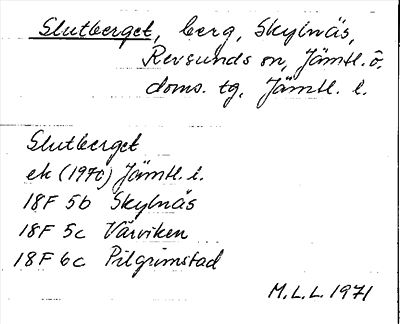 Slutberget, berg, Skylnäs,
Revsunds sn, Jämtl. ö.
doms. tg, Jämtl. l.
Slutberget
ek (1970) Jämtl. l.
18F 5b Skylnäs
18F 5c Värviken
18F 6c Pilgrimstad
M.L.L. 1971